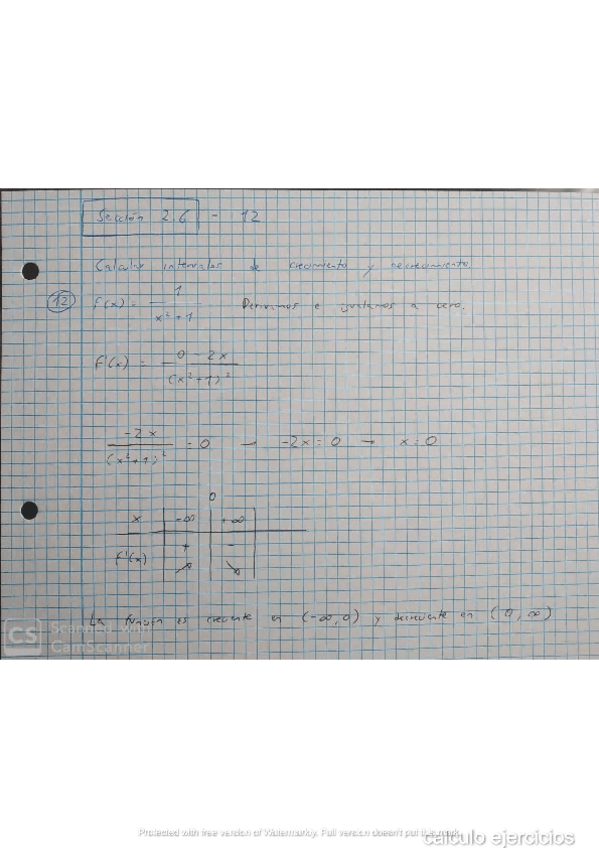 Sección 2.6 - 12
Calcular intervalos de crecimiento y decrecimiento
12 f(x) = 1 / x² + 1 Derivamos e igualamos a cero.
f'(x) = 0 - 2x / (x² + 1)²
-2x / (x² + 1)² = 0 → -2x = 0 → x = 0
0
x -∞ +∞
f'(x) + -
↗ ↘
La función es creciente en (-∞, 0) y decreciente en (0, ∞)
CS Scanned with
CamScanner
Protected with free version of Watermarkly. Full version doesn't put this mark.
calculo ejercicios